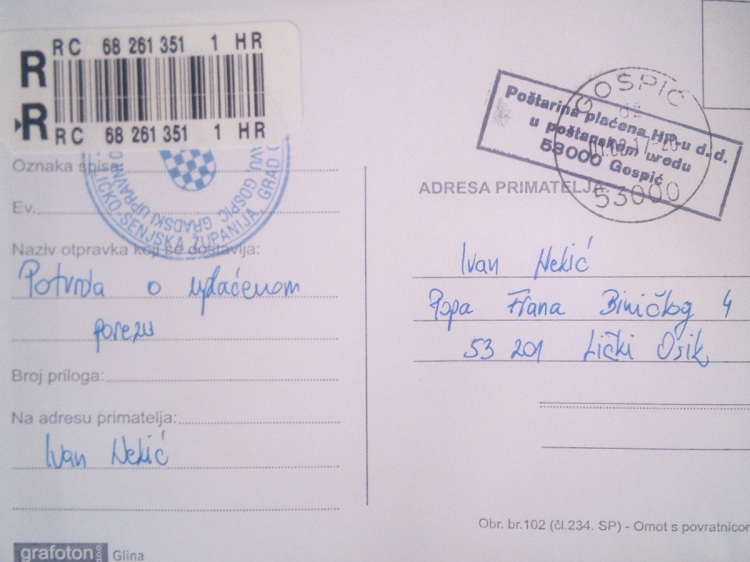 RC 68 261 351 1 HR
R
R
RC 68 261 351 1 HR
Oznaka spisa:
Ev.
Naziv otpravka koji se dostavlja:
Potvrda o uplaćenom
porezu
Broj priloga:
Na adresu primatelja:
Ivan Nekić
grafoton d.o.o.
Glina
LIČKO-SENJSKA ŽUPANIJA, GRAD GOSPIĆ GRADSKI
GOSPIĆ
53000
Poštarina plaćena HP-u d.d.
u poštanskom uredu
53000 Gospić
ADRESA PRIMATELJA:
Ivan Nekić
Popa Frana Biničkog 4
53 201 Lički Osik
Obr. br.102 (čl.234. SP) - Omot s povratnicom